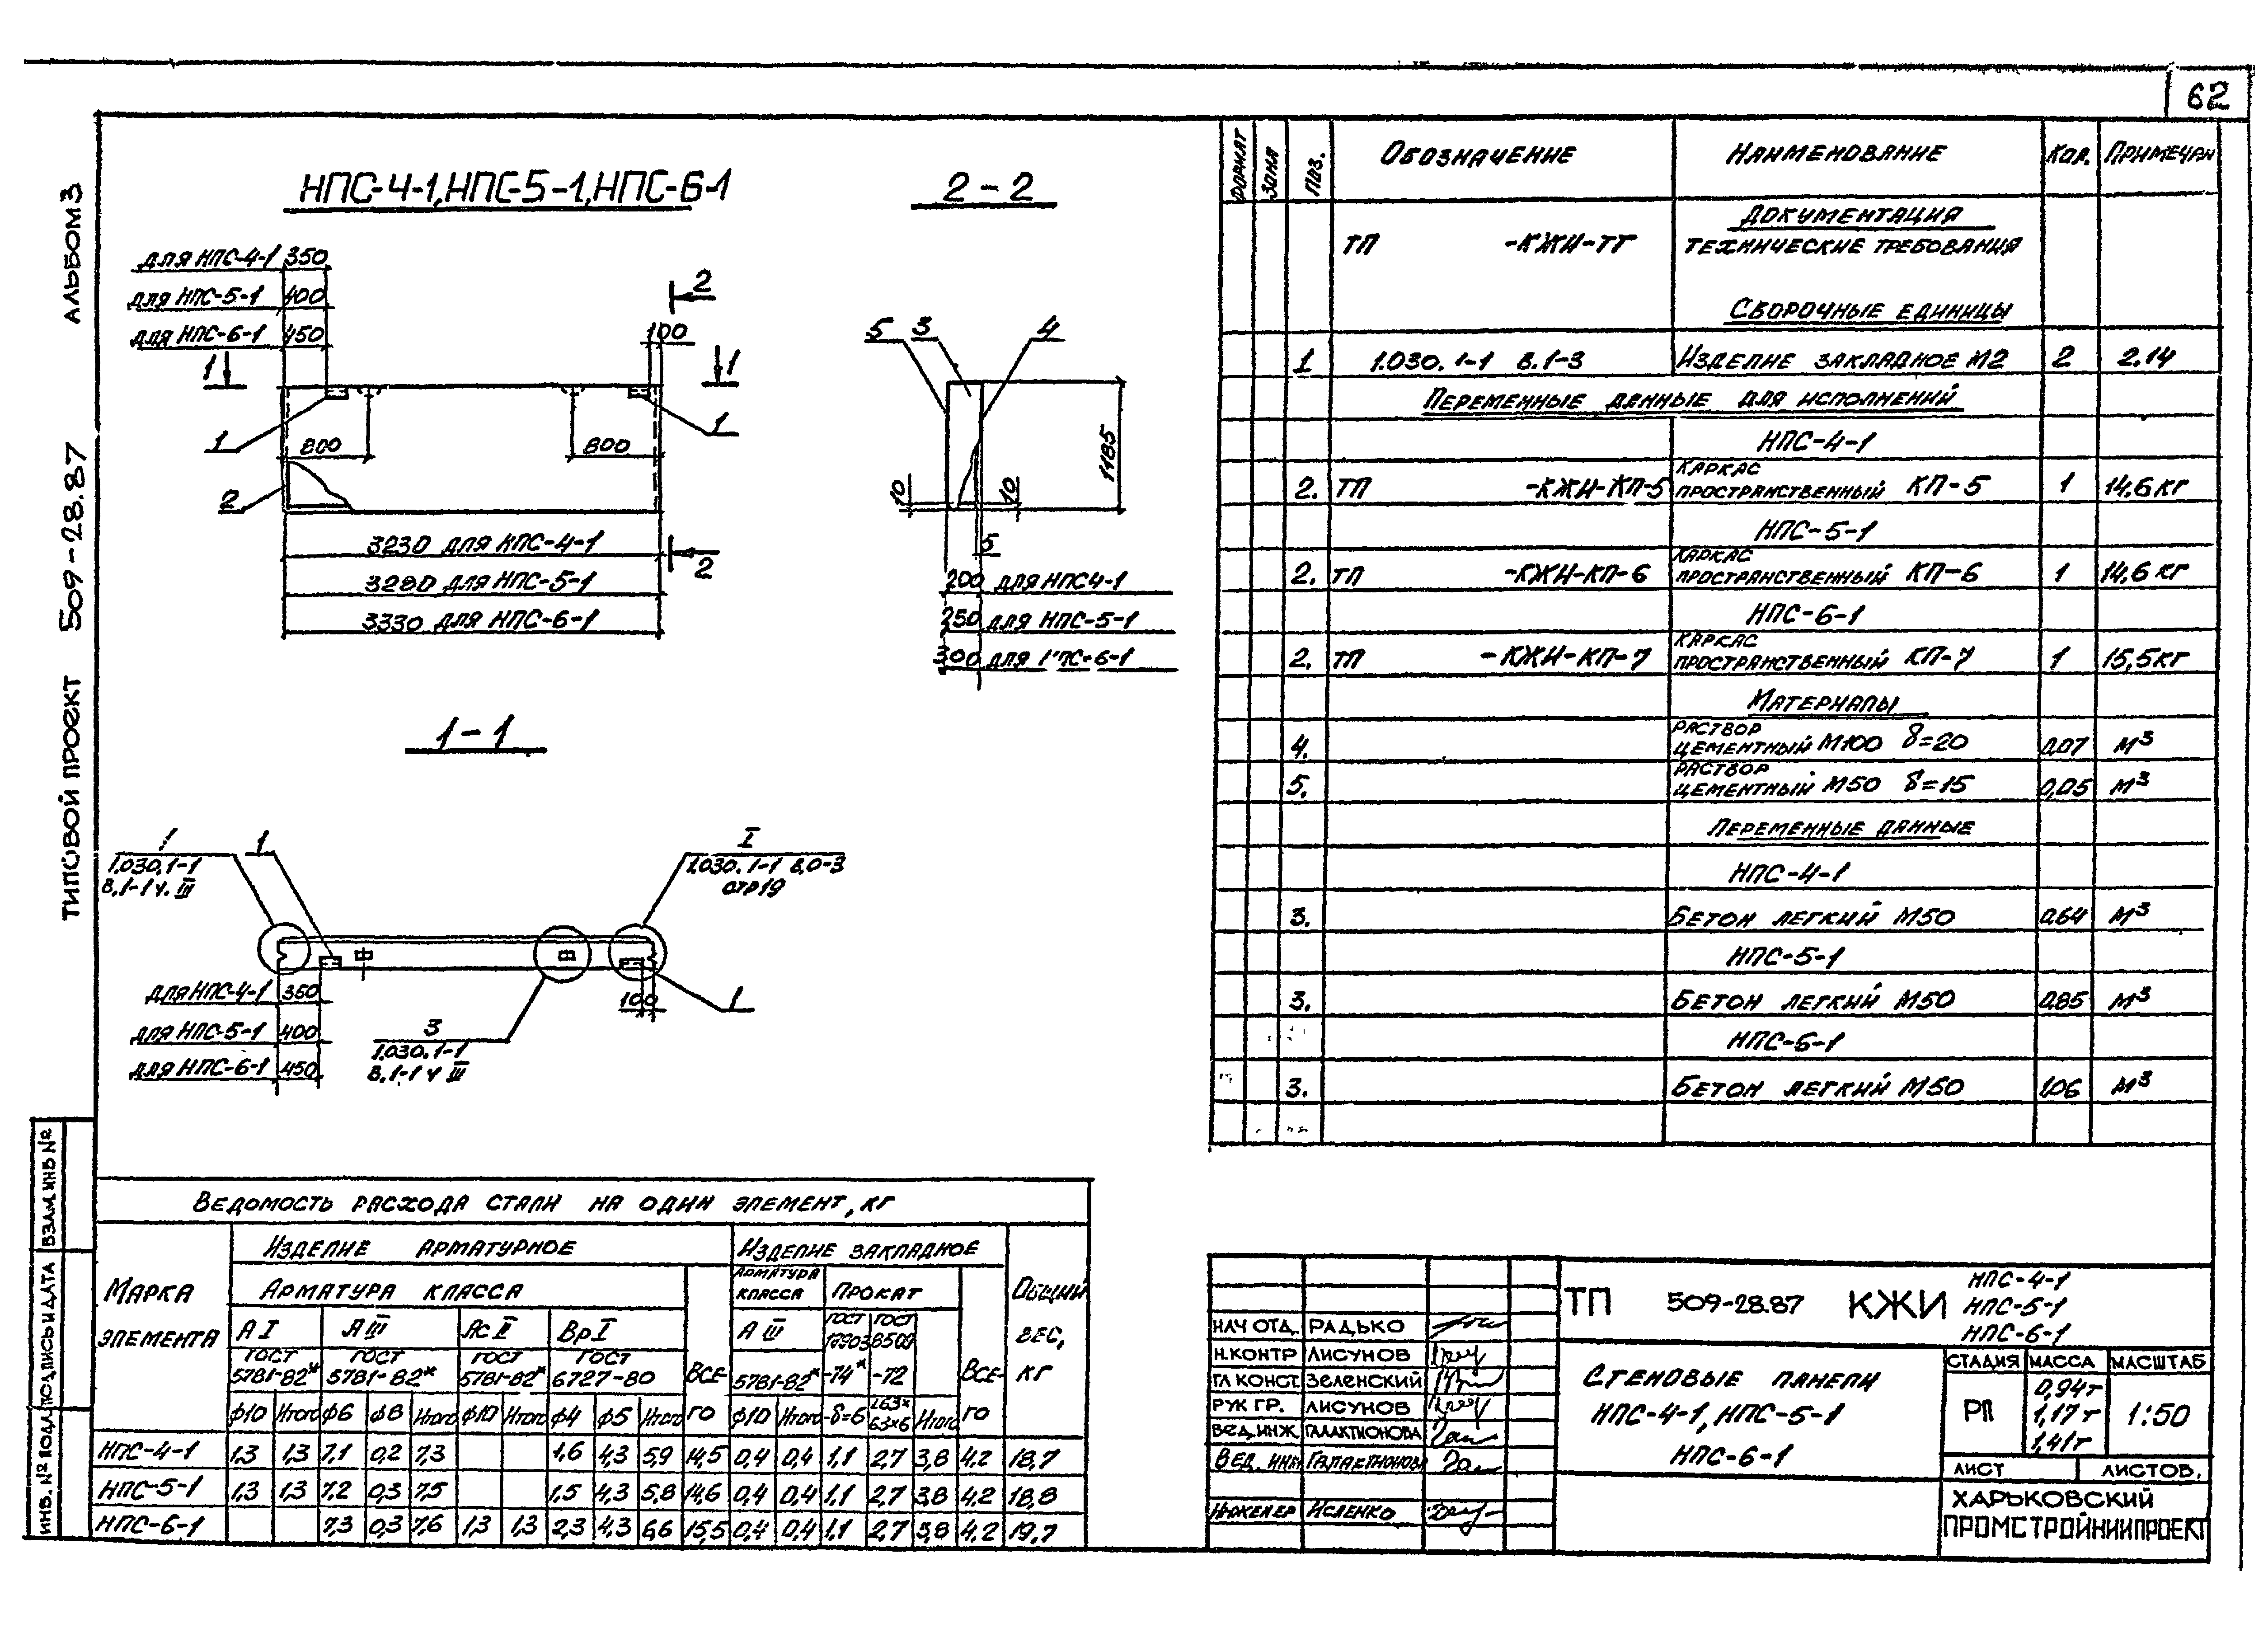 62
АЛЬБОМ 3
ТИПОВОЙ ПРОЕКТ 509-28.87
НПС-4-1, НПС-5-1, НПС-6-1
ДЛЯ НПС-4-1 350
ДЛЯ НПС-5-1 400
ДЛЯ НПС-6-1 450
2
100
1 1
1 1
800 800
2
3230 ДЛЯ КПС-4-1
2
3280 ДЛЯ НПС-5-1
3330 ДЛЯ НПС-6-1
2-2
5 3 4
1185
10 10
5
200 ДЛЯ НПС4-1
250 ДЛЯ НПС-5-1
300 ДЛЯ НПС-6-1
1-1
1
1.030.1-1
В.1-1 ч. III
1
I
1.030.1-1 В.0-3
СТР 19
ДЛЯ НПС-4-1 350
ДЛЯ НПС-5-1 400
ДЛЯ НПС-6-1 450
100
1
3
1.030.1-1
В.1-1 ч III
ФОРМАТ ЗОНА ПОЗ. ОБОЗНАЧЕНИЕ НАИМЕНОВАНИЕ КОЛ. ПРИМЕЧАН
ДОКУМЕНТАЦИЯ
ТП -КЖИ-ТТ ТЕХНИЧЕСКИЕ ТРЕБОВАНИЯ
СБОРОЧНЫЕ ЕДИНИЦЫ
1 1.030.1-1 В.1-3 ИЗДЕЛИЕ ЗАКЛАДНОЕ М2 2 2.14
ПЕРЕМЕННЫЕ ДАННЫЕ ДЛЯ ИСПОЛНЕНИЙ
НПС-4-1
2. ТП -КЖИ-КП-5 КАРКАС ПРОСТРАНСТВЕННЫЙ КП-5 1 14,6 КГ
НПС-5-1
2. ТП -КЖИ-КП-6 КАРКАС ПРОСТРАНСТВЕННЫЙ КП-6 1 14,6 КГ
НПС-6-1
2. ТП -КЖИ-КП-7 КАРКАС ПРОСТРАНСТВЕННЫЙ КП-7 1 15,5 КГ
МАТЕРИАЛЫ
4. РАСТВОР ЦЕМЕНТНЫЙ М100 δ=20 0,07 М³
5. РАСТВОР ЦЕМЕНТНЫЙ М50 δ=15 0,05 М³
ПЕРЕМЕННЫЕ ДАННЫЕ
НПС-4-1
3. БЕТОН ЛЕГКИЙ М50 0,64 М³
НПС-5-1
3. БЕТОН ЛЕГКИЙ М50 0,85 М³
НПС-6-1
3. БЕТОН ЛЕГКИЙ М50 1,06 М³
ВЕДОМОСТЬ РАСХОДА СТАЛИ НА ОДИН ЭЛЕМЕНТ, КГ
МАРКА ЭЛЕМЕНТА
ИЗДЕЛИЕ АРМАТУРНОЕ ИЗДЕЛИЕ ЗАКЛАДНОЕ ОБЩИЙ ВЕС, КГ
АРМАТУРА КЛАССА ВСЕГО АРМАТУРА КЛАССА ПРОКАТ ВСЕГО
А I А III Ас II Вр I А III ГОСТ 19903-74* ГОСТ 8509-72
ГОСТ 5781-82* ГОСТ 5781-82* ГОСТ 5781-82* ГОСТ 6727-80 5781-82*
ϕ10 Итого ϕ6 ϕ8 Итого ϕ10 Итого ϕ4 ϕ5 Итого ϕ10 Итого -δ=6 L63×63×6 Итого
НПС-4-1 1,3 1,3 7,1 0,2 7,3 1.6 4,3 5,9 14,5 0,4 0,4 1,1 2,7 3,8 4,2 18,7
НПС-5-1 1,3 1,3 7,2 0,3 7,5 1,5 4,3 5,8 14,6 0,4 0,4 1,1 2,7 3,8 4,2 18,8
НПС-6-1 7,3 0,3 7,6 1,3 1,3 2,3 4,3 6,6 15,5 0,4 0,4 1,1 2,7 3,8 4,2 19,7
ВЗАМ. ИНВ №
ПОДПИСЬ И ДАТА
ИНВ. № ПОДЛ.
НАЧ ОТД. РАДЬКО
Н.КОНТР ЛИСУНОВ
ГЛ КОНСТ. ЗЕЛЕНСКИЙ
РУК ГР. ЛИСУНОВ
ВЕД.ИНЖ. ГАЛАКТИОНОВА
ВЕД. ИНЖ ГАЛАКТИОНОВА
ИНЖЕНЕР ИСЛЕНКО
ТП 509-28.87 КЖИ
НПС-4-1
НПС-5-1
НПС-6-1
СТЕНОВЫЕ ПАНЕЛИ
НПС-4-1, НПС-5-1
НПС-6-1
СТАДИЯ МАССА МАСШТАБ
РП
0,94т
1,17т
1,41т
1:50
ЛИСТ ЛИСТОВ.
ХАРЬКОВСКИЙ
ПРОМСТРОЙНИИПРОЕКТ